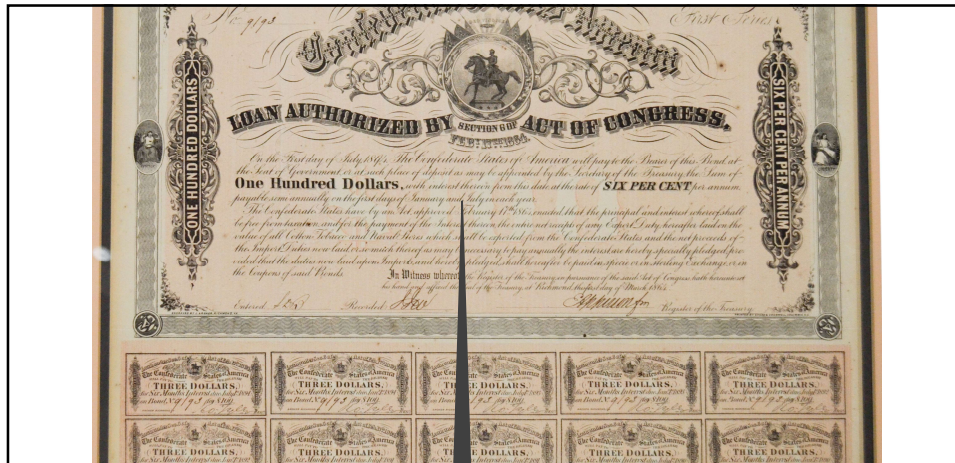 No. 9193 First Series
Confederate States America
LOAN AUTHORIZED BY SECTION 6 OF ACT OF CONGRESS,
FEBY. 17TH 1864.
ONE HUNDRED DOLLARS
SIX PER CENT PER ANNUM
On the First day of July 1894, The Confederate States of America will pay to the Bearer of this Bond, at
the Seat of Government or at such place of deposit as may be appointed by the Secretary of the Treasury, the Sum of
One Hundred Dollars, with interest thereon from this date at the rate of SIX PER CENT per annum,
payable semi annually on the first days of January and July in each year.
The Confederate States have by an Act approved February 17th 1864, enacted that the principal and interest whereof shall
be free from taxation, and for the payment of the Interest thereon, the entire net receipts of any Export Duty, hereafter laid on the
value of all Cotton Tobacco and Naval Stores which shall be exported from the Confederate States and the net proceeds of
the Import Duties now laid or so much thereof as may be necessary to pay annually the interest are hereby specially pledged: pro-
vided that the duties now laid upon Imports and hereby pledged, shall hereafter be paid in specie or in sterling Exchange, or in
the Coupons of said Bonds.
In Witness whereof the Register of the Treasury in pursuance of the said Act of Congress, hath hereunto set
his hand and affixed the Seal of the Treasury at Richmond, the first day of March 186
Entered Recorded Register of the Treasury
The Confederate States of America The Confederate States of America The Confederate The Confederate States of America The Confederate States of America
THREE DOLLARS, THREE DOLLARS, THREE DOLLARS, THREE DOLLARS, THREE DOLLARS,
for Six Months Interest due for Six Months Interest due for Six Interest due for Six Months Interest due for Six Months Interest due
on Bond, No. 9193 for $100 on Bond, No. 9193 for $100 on Bond for $100 on Bond, No. 9193 for $100 on Bond, No. 9193 for $100
The Confederate States of America The Confederate States of America The Confederate The Confederate States of America The Confederate States of America
THREE DOLLARS, THREE DOLLARS, THREE DOLLARS, THREE DOLLARS, THREE DOLLARS,